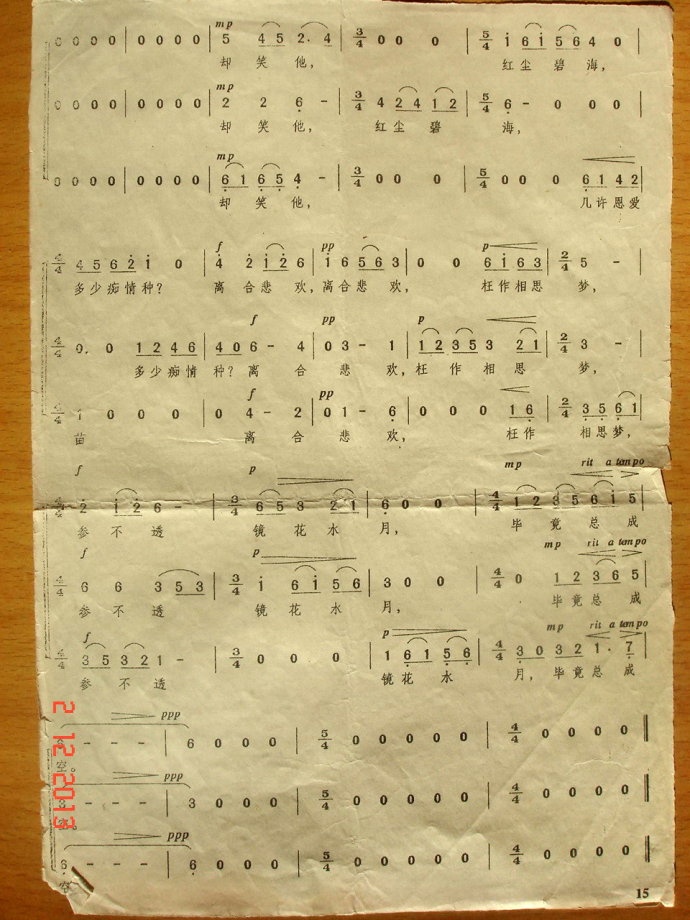 mp
0 0 0 0 | 0 0 0 0 | 5 4 5 2 · 4 | 3/4 0 0 0 | 5/4 i 6 i 5 6 4 0 |
却 笑 他， 红尘 碧 海，
mp
0 0 0 0 | 0 0 0 0 | 2 2 6 - | 3/4 4 2 4 1 2 | 5/4 6 - 0 0 0 |
却 笑 他， 红尘 碧 海，
mp
0 0 0 0 | 0 0 0 0 | 6 1 6 5 4 - | 3/4 0 0 0 | 5/4 0 0 0 6 1 4 2 |
却 笑 他， 几许恩爱
f pp p
4/4 4 5 6 2 i 0 | 4 2 i 2 6 | i 6 5 6 3 | 0 0 6 i 6 3 | 2/4 5 - |
多少痴情种？ 离 合 悲 欢，离合悲 欢， 枉作相思 梦，
f pp p
4/4 0. 0 1 2 4 6 | 4 0 6 - 4 | 0 3 - 1 | 1 2 3 5 3 2 1 | 2/4 3 - |
多少痴情 种？离 合 悲 欢，枉 作 相 思 梦，
f pp
4/4 1 0 0 0 | 0 4 - 2 | 0 1 - 6 | 0 0 0 1 6 | 2/4 3 5 6 1 |
苗 离 合 悲 欢， 枉作 相思梦，
f p mp rit a tempo
4/4 2 i 2 6 - | 3/4 6 5 3 2 1 | 6 0 0 | 4/4 1 2 3 5 6 i 5 |
参 不 透 镜 花 水 月， 毕 竟 总 成
f p mp rit a tempo
4/4 6 6 3 5 3 | 3/4 i 6 i 5 6 | 3 0 0 | 4/4 0 1 2 3 6 5 |
参 不 透 镜 花 水 月， 毕竟 总 成
f p mp rit a tempo
4/4 3 5 3 2 1 - | 3/4 0 0 0 | 1 6 1 5 6 | 4/4 3 0 3 2 1 · 7 |
参 不 透 镜花 水 月，毕竟 总 成
ppp
6 - - - | 6 0 0 0 | 5/4 0 0 0 0 0 | 4/4 0 0 0 0 ‖
空。
ppp
3 - - - | 3 0 0 0 | 5/4 0 0 0 0 0 | 4/4 0 0 0 0 ‖
ppp
6 - - - | 6 0 0 0 | 5/4 0 0 0 0 0 | 4/4 0 0 0 0 ‖
15
2 12 2013